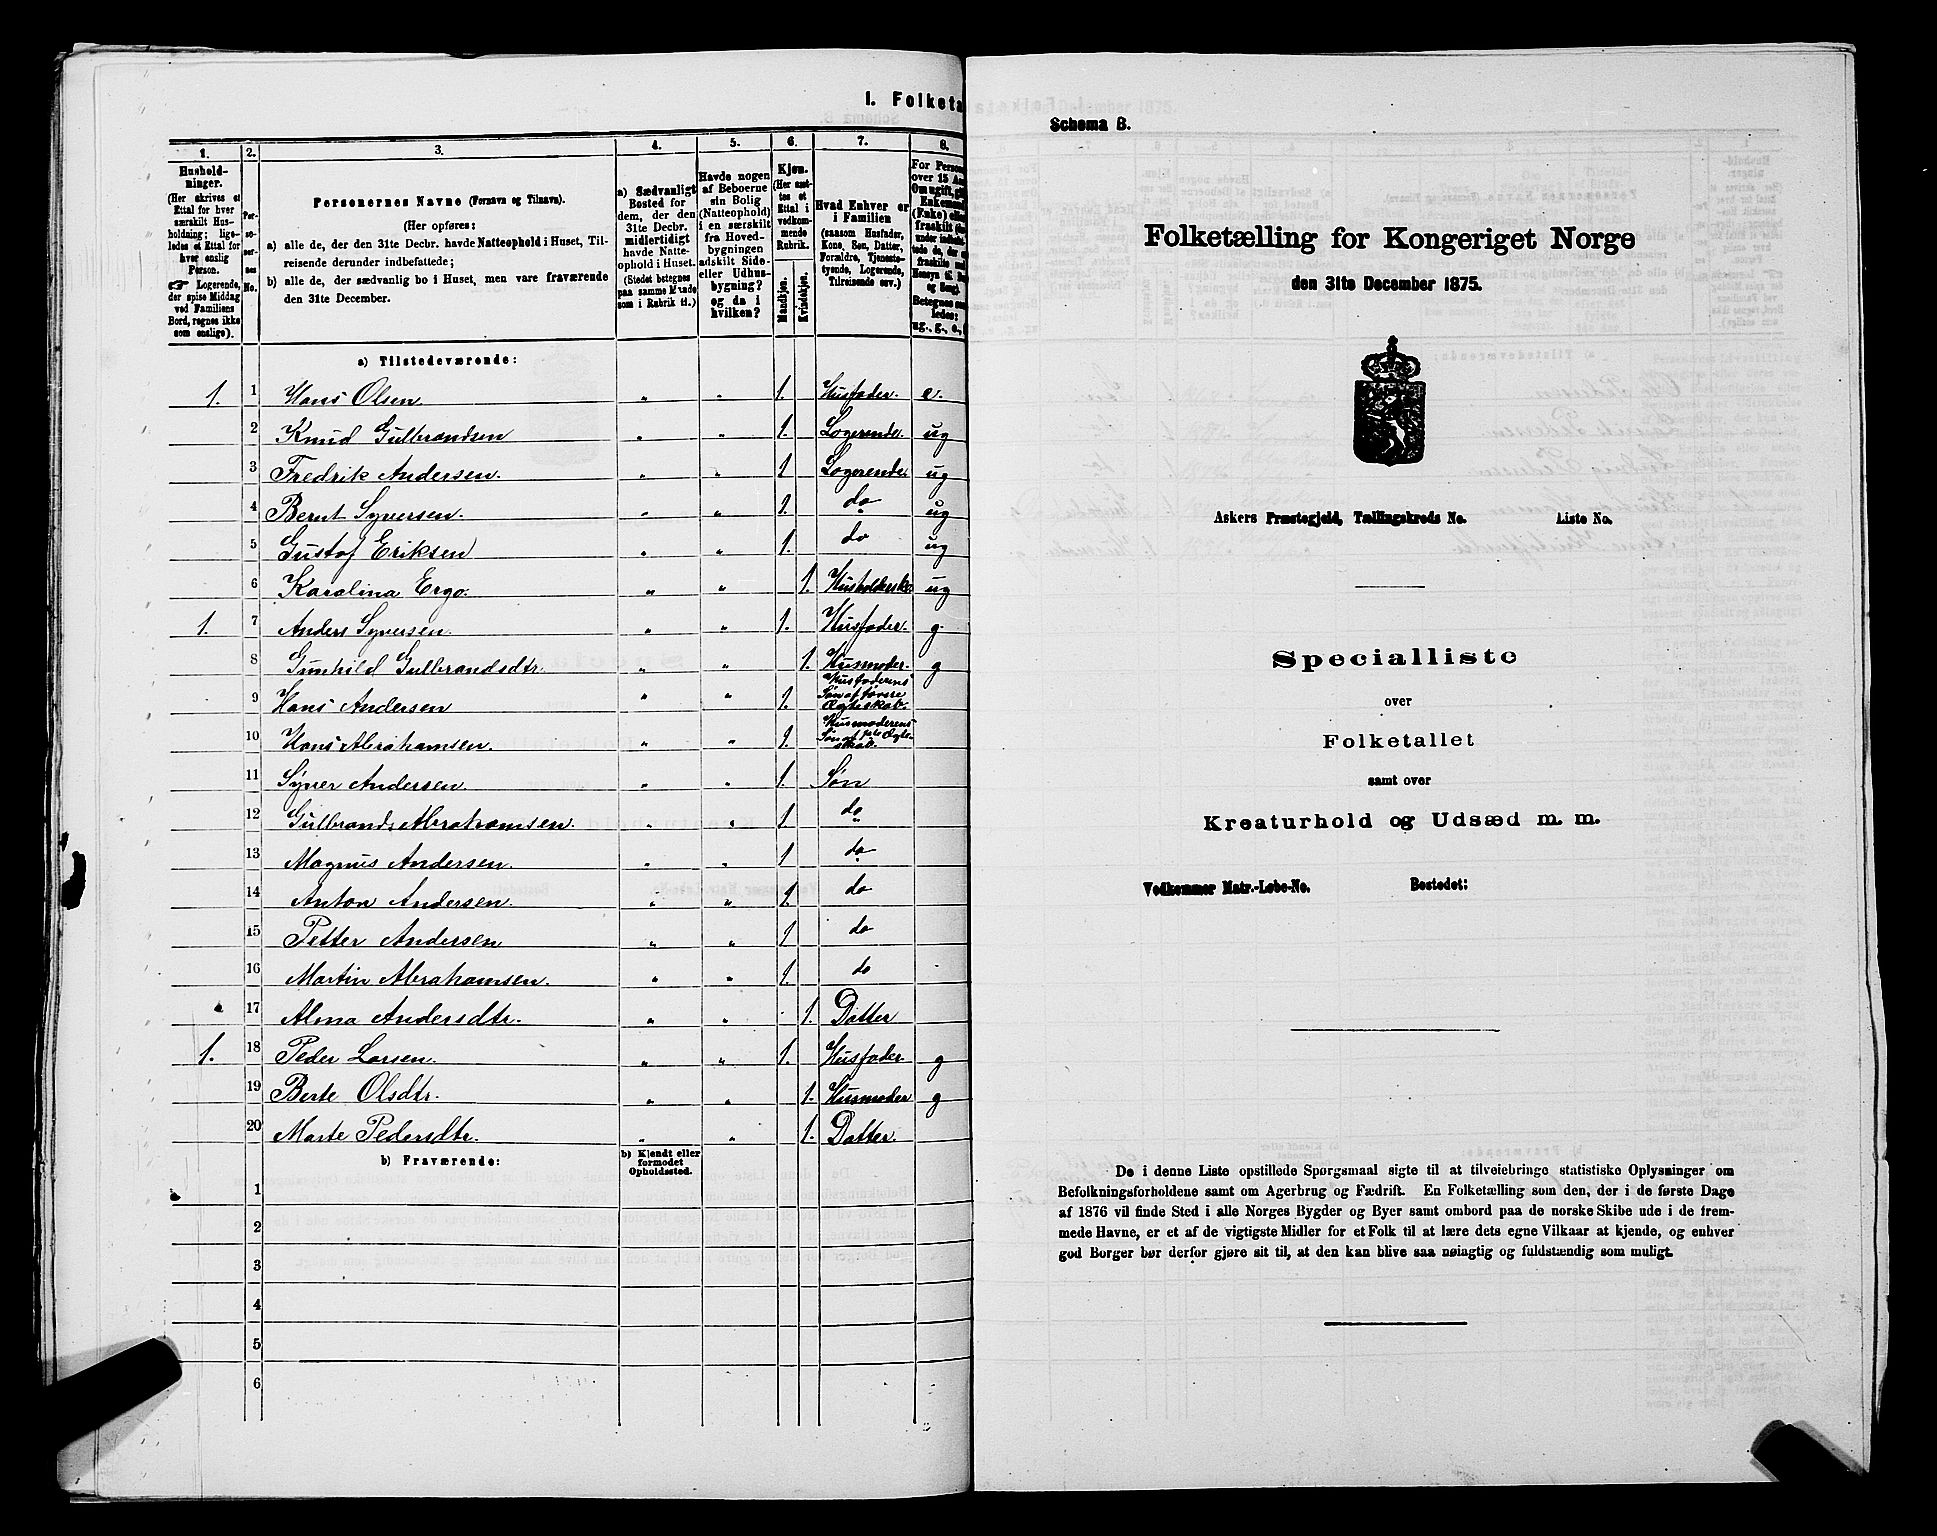 I. Folketa
1.
2.
3.
4.
5.
6.
7.
8.
Hushold-
ninger.
(Her skrives et
Ettal for hver
særskilt Hus-
holdning; lige-
ledes et Ettal for
hver enslig
Person.
☞ Logerende,
der spise Middag
ved Familiens
Bord, regnes ikke
som enslige).
Per-
so-
ner-
nes
No.
Personernes Navne (Fornavn og Tilnavn).
(Her opføres:
a) alle de, der den 31te Decbr. havde Natteophold i Huset, Til-
reisende derunder indbefattede;
b) alle de, der sædvanlig bo i Huset, men vare fraværende
den 31te December.
a) Sædvanligt
Bosted for
dem, der den
31te Decbr.
midlertidigt
havde Natte-
ophold i Huset.
(Stedet betegnes
paa samme Maade
som i Rubrik 11.)
Havde nogen
af Beboerne
sin Bolig
(Natteophold)
i en særskilt
fra Hoved-
bygningen
adskilt Side-
eller Udhus-
bygning?
og da i
hvilken?
Kjøn.
(Her sæt-
tes et
Ettal i
vedkom-
mende
Rubrik.
Mandkjøn.
Kvindekjøn.
Hvad Enhver er
i Familien
(saasom Husfader,
Kone, Søn, Datter,
Forældre, Tjeneste-
tyende, Logerende,
Tilreisende osv.)
For Person
over 15 Aar
Om ugift, gift
Enkemand
(Enke) eller
fraskilt
Betegnes saa
ledes:
ug., g., e.,
a) Tilstedeværende:
1. 1 Hans Olsen. „ „ 1. Husfader. e.
2 Knud Gulbrandsen „ „ 1. Logerende. ug
3 Fredrik Andersen. „ „ 1 Logerende. ug
4 Bernt Syversen. „ „ 1. do ug
5 Gustaf Eriksen „ „ 1. do ug
6 Karalina Ergo. „ „ 1. Husholderske ug
1. 7 Anders Syversen. „ „ 1. Husfader. g.
8 Gunhild Gulbrandsdtr. „ „ 1. Husmoder. g
9 Hans Andersen „ „ 1. Husfaderens Søn af forrre Ægteskab.
10 Hans Abrahamsen. „ „ 1. Husmoderens Søn af 1ste Ægteskab.
11 Syver Andersen. „ „ 1. Søn
12 Gulbrand Abrahamsen. „ „ 1 do
13 Magnus Andersen. „ „ 1 do
14 Anton Andersen. „ „ 1. do
15 Petter Andersen „ „ 1 do
16 Martin Abrahamsen. „ „ 1. do
17 Alma Andersdtr. „ „ 1. Datter
1. 18 Peder Larsen. „ „ 1. Husfader. g
19 Berte Olsdtr. „ „ 1. Husmoder g
20 Marte Pedersdtr. „ „ 1. Datter.
b) Fraværende:
b) Kjendt eller
formodet
Opholdssted.
1
2
3
4
5
6
Schema B.
Folketælling for Kongeriget Norge
den 31te December 1875.
Askers Præstegjeld, Tællingskreds No. Liste No.
Specialliste
over
Folketallet
samt over
Kreaturhold og Udsæd m. m.
Vedkommer Matr.-Løbe-No. Bostedet:
De i denne Liste opstillede Spørgsmaal sigte til at tilveiebringe statistiske Oplysninger om
Befolkningsforholdene samt om Agerbrug og Fædrift. En Folketælling som den, der i de første Dage
af 1876 vil finde Sted i alle Norges Bygder og Byer samt ombord paa de norske Skibe ude i de frem-
mede Havne, er et af de vigtigste Midler for et Folk til at lære dets egne Vilkaar at kjende, og enhver
god Borger bør derfor gjøre sit til, at den kan blive saa nøiagtig og fuldstændig som muligt.